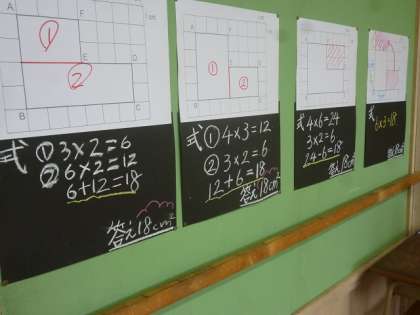 A
F
cm
①
E
D
②
B
C
式 ①3×2=6
②6×2=12
6+12=18
答え18cm²
cm
①
②
式 ①4×3=12
②3×2=6
12+6=18
答え18cm²
cm
式 4×6=24
3×2=6
24-6=18
答え18cm²
式
6×3=18